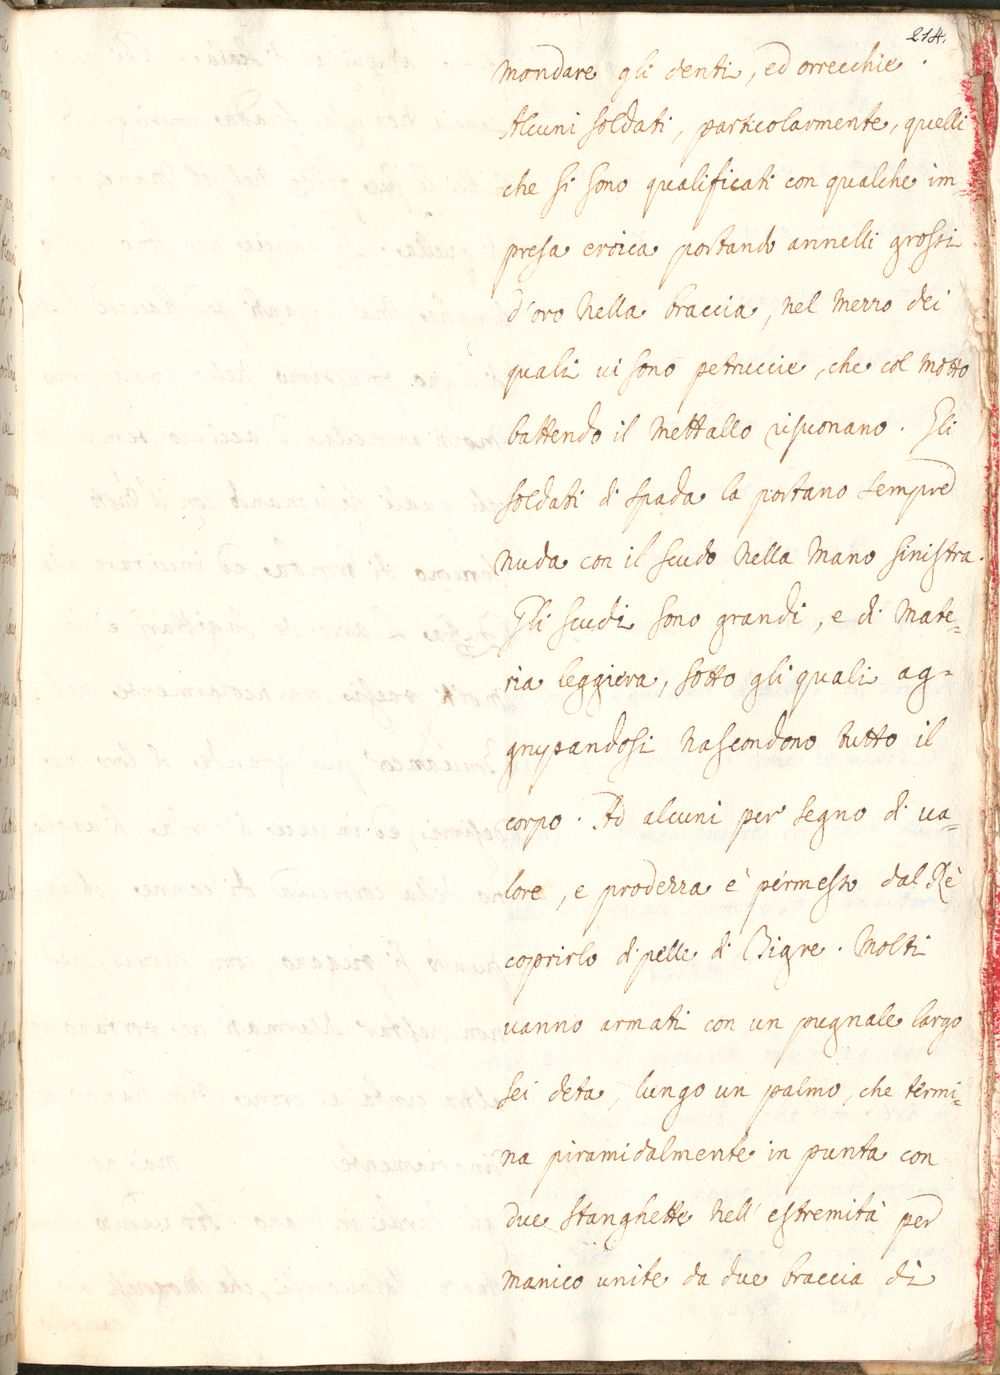 214.
mondare gli denti, ed orrecchie.
Alcuni soldati, particolarmente, quelli
che si sono qualificati con qualche im=
presa eroica portando annelli grossi
d'oro nella braccia, nel mezzo dei
quali vi sono petruccie, che col motto
battendo il mettallo risuonano. Gli
soldati di spada la portano sempre
nuda con il scudo nella mano sinistra.
Gli scudi sono grandi, e di mate=
ria leggiera, sotto gli quali ag=
grupandosi nascondono tutto il
corpo. Ad alcuni per segno di va=
lore, e prodezza è permesso dal Rè
coprirlo di pelle di Tigre. Molti
vanno armati con un pugnale largo
sei deta, lungo un palmo, che termi=
na piramidalmente in punta con
due stanghette nell' estremità per
manico unite da due braccia di